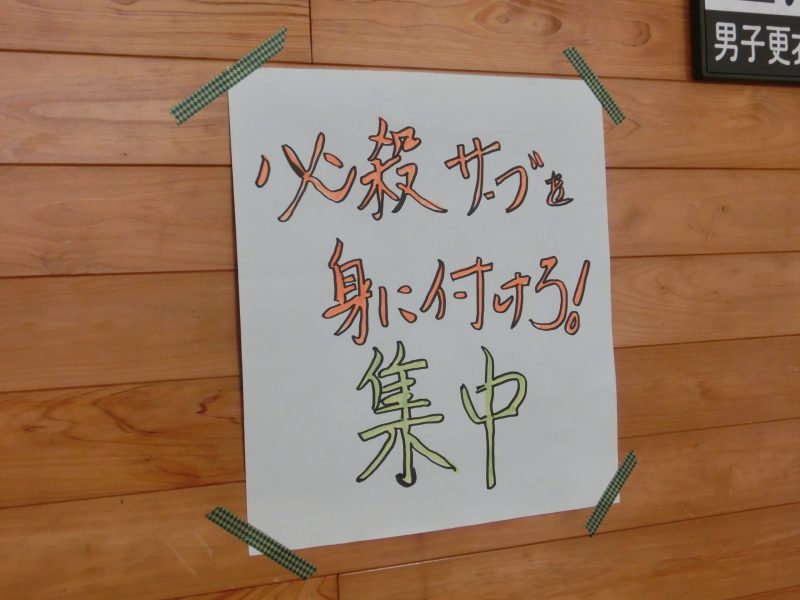 必殺サーブを
身に付けろ!
集中
男子更衣